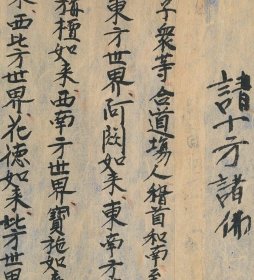 請十方諸佛
子衆等合道場人稽首和南至
東方世界阿閦如来東南方
栴檀如来西南方世界寶施如
西北方世界花德如来北方世界